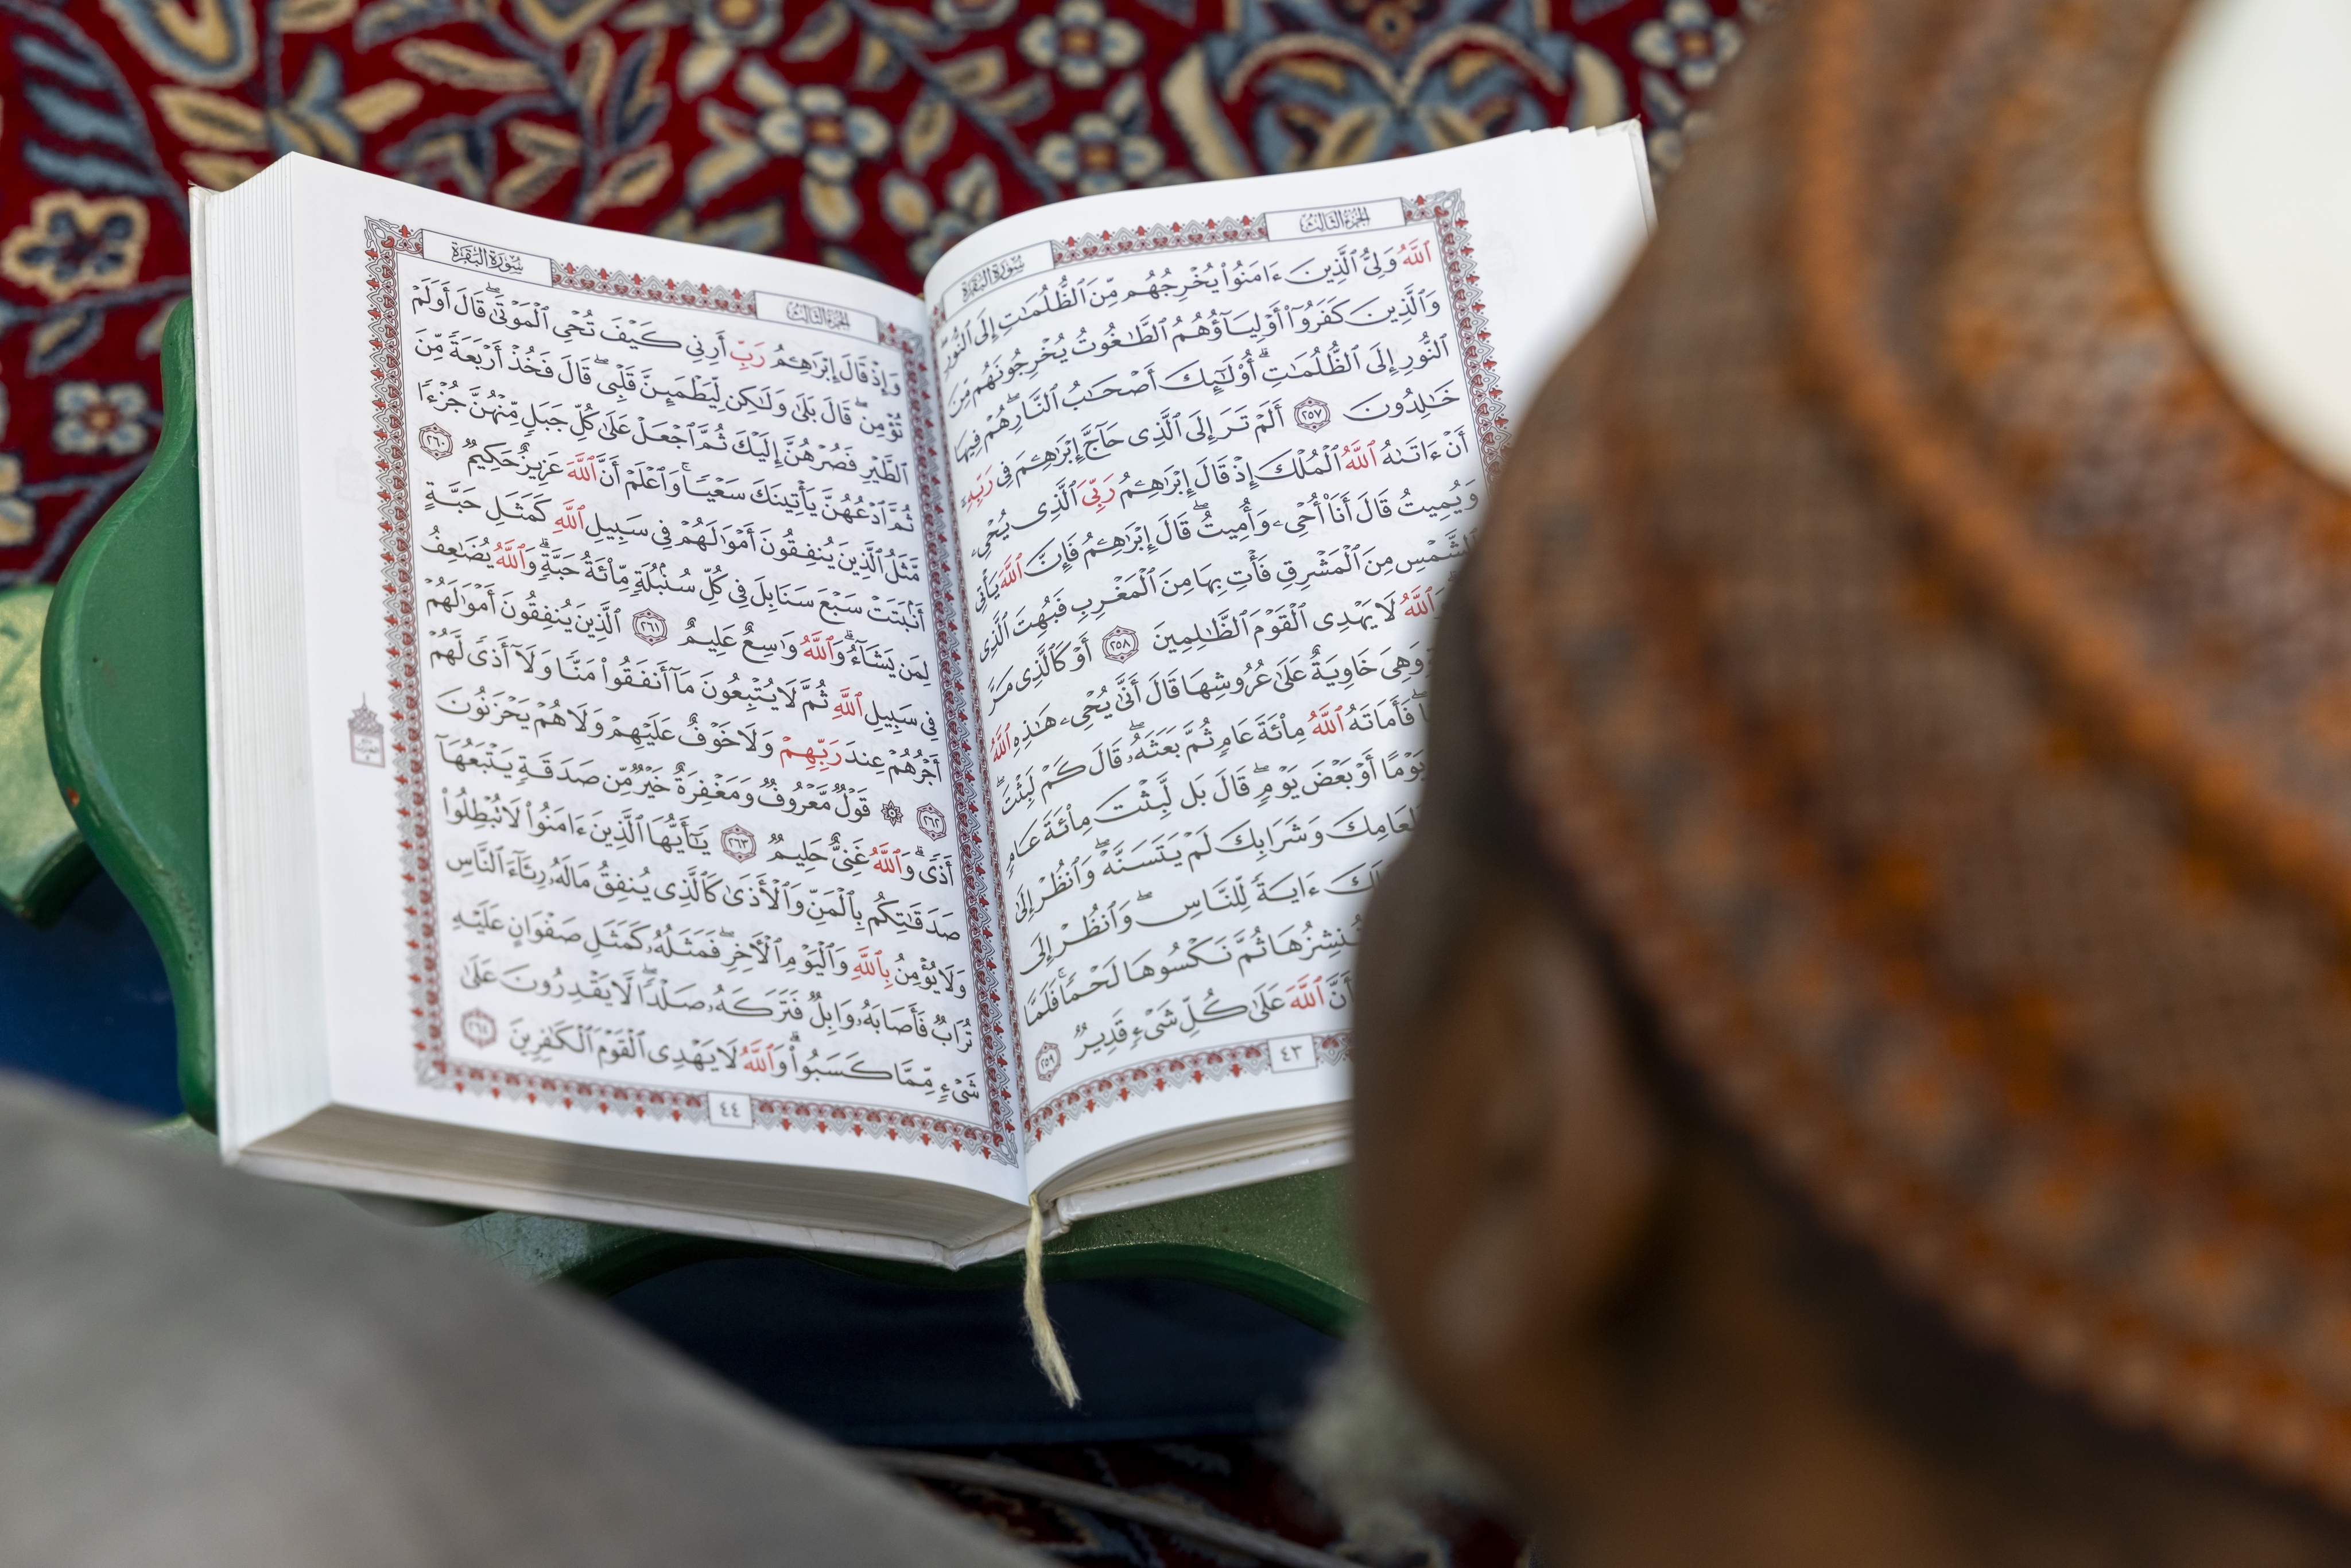 الجزء الثالث
سورة البقرة
ٱللَّهُ وَلِىُّ ٱلَّذِينَ ءَامَنُوا۟ يُخْرِجُهُم مِّنَ ٱلظُّلُمَٰتِ إِلَى ٱلنُّورِ ۖ
وَٱلَّذِينَ كَفَرُوٓا۟ أَوْلِيَآؤُهُمُ ٱلطَّٰغُوتُ يُخْرِجُونَهُم مِّنَ
ٱلنُّورِ إِلَى ٱلظُّلُمَٰتِ ۗ أُو۟لَٰٓئِكَ أَصْحَٰبُ ٱلنَّارِ ۖ هُمْ فِيهَا
خَٰلِدُونَ ٢٥٧ أَلَمْ تَرَ إِلَى ٱلَّذِى حَآجَّ إِبْرَٰهِـۧمَ فِى رَبِّهِۦٓ
أَنْ ءَاتَىٰهُ ٱللَّهُ ٱلْمُلْكَ إِذْ قَالَ إِبْرَٰهِـۧمُ رَبِّىَ ٱلَّذِى يُحْىِۦ
وَيُمِيتُ قَالَ أَنَا۠ أُحْىِۦ وَأُمِيتُ ۖ قَالَ إِبْرَٰهِـۧمُ فَإِنَّ ٱللَّهَ يَأْتِى
بِٱلشَّمْسِ مِنَ ٱلْمَشْرِقِ فَأْتِ بِهَا مِنَ ٱلْمَغْرِبِ فَبُهِتَ ٱلَّذِى
ٱللَّهُ لَا يَهْدِى ٱلْقَوْمَ ٱلظَّٰلِمِينَ ٢٥٨ أَوْ كَٱلَّذِى مَرَّ
وَهِىَ خَاوِيَةٌ عَلَىٰ عُرُوشِهَا قَالَ أَنَّىٰ يُحْىِۦ هَٰذِهِ ٱللَّهُ
فَأَمَاتَهُ ٱللَّهُ مِا۟ئَةَ عَامٍ ثُمَّ بَعَثَهُۥ ۖ قَالَ كَمْ لَبِثْتَ ۖ
يَوْمًا أَوْ بَعْضَ يَوْمٍ ۖ قَالَ بَل لَّبِثْتَ مِا۟ئَةَ عَامٍ
طَعَامِكَ وَشَرَابِكَ لَمْ يَتَسَنَّهْ ۖ وَٱنظُرْ إِلَىٰ
ءَايَةً لِّلنَّاسِ ۖ وَٱنظُرْ إِلَى
نُنشِزُهَا ثُمَّ نَكْسُوهَا لَحْمًا ۚ فَلَمَّا
أَنَّ ٱللَّهَ عَلَىٰ كُلِّ شَىْءٍ قَدِيرٌ ٢٥٩
٤٣
الجزء الثالث
سورة البقرة
وَإِذْ قَالَ إِبْرَٰهِـۧمُ رَبِّ أَرِنِى كَيْفَ تُحْىِ ٱلْمَوْتَىٰ ۖ قَالَ أَوَلَمْ
تُؤْمِن ۖ قَالَ بَلَىٰ وَلَٰكِن لِّيَطْمَئِنَّ قَلْبِى ۖ قَالَ فَخُذْ أَرْبَعَةً مِّنَ
ٱلطَّيْرِ فَصُرْهُنَّ إِلَيْكَ ثُمَّ ٱجْعَلْ عَلَىٰ كُلِّ جَبَلٍ مِّنْهُنَّ جُزْءًا
ثُمَّ ٱدْعُهُنَّ يَأْتِينَكَ سَعْيًا ۚ وَٱعْلَمْ أَنَّ ٱللَّهَ عَزِيزٌ حَكِيمٌ ٢٦٠
مَّثَلُ ٱلَّذِينَ يُنفِقُونَ أَمْوَٰلَهُمْ فِى سَبِيلِ ٱللَّهِ كَمَثَلِ حَبَّةٍ
أَنۢبَتَتْ سَبْعَ سَنَابِلَ فِى كُلِّ سُنۢبُلَةٍ مِّا۟ئَةُ حَبَّةٍ ۗ وَٱللَّهُ يُضَٰعِفُ
لِمَن يَشَآءُ ۗ وَٱللَّهُ وَٰسِعٌ عَلِيمٌ ٢٦١ ٱلَّذِينَ يُنفِقُونَ أَمْوَٰلَهُمْ
فِى سَبِيلِ ٱللَّهِ ثُمَّ لَا يُتْبِعُونَ مَآ أَنفَقُوا۟ مَنًّا وَلَآ أَذًى ۙ لَّهُمْ
أَجْرُهُمْ عِندَ رَبِّهِمْ وَلَا خَوْفٌ عَلَيْهِمْ وَلَا هُمْ يَحْزَنُونَ
٢٦٢ ۞ قَوْلٌ مَّعْرُوفٌ وَمَغْفِرَةٌ خَيْرٌ مِّن صَدَقَةٍ يَتْبَعُهَآ
أَذًى ۗ وَٱللَّهُ غَنِىٌّ حَلِيمٌ ٢٦٣ يَٰٓأَيُّهَا ٱلَّذِينَ ءَامَنُوا۟ لَا تُبْطِلُوا۟
صَدَقَٰتِكُم بِٱلْمَنِّ وَٱلْأَذَىٰ كَٱلَّذِى يُنفِقُ مَالَهُۥ رِئَآءَ ٱلنَّاسِ
وَلَا يُؤْمِنُ بِٱللَّهِ وَٱلْيَوْمِ ٱلْءَاخِرِ ۖ فَمَثَلُهُۥ كَمَثَلِ صَفْوَانٍ عَلَيْهِ
تُرَابٌ فَأَصَابَهُۥ وَابِلٌ فَتَرَكَهُۥ صَلْدًا ۖ لَّا يَقْدِرُونَ عَلَىٰ
شَىْءٍ مِّمَّا كَسَبُوا۟ ۗ وَٱللَّهُ لَا يَهْدِى ٱلْقَوْمَ ٱلْكَٰفِرِينَ ٢٦٤
٤٤